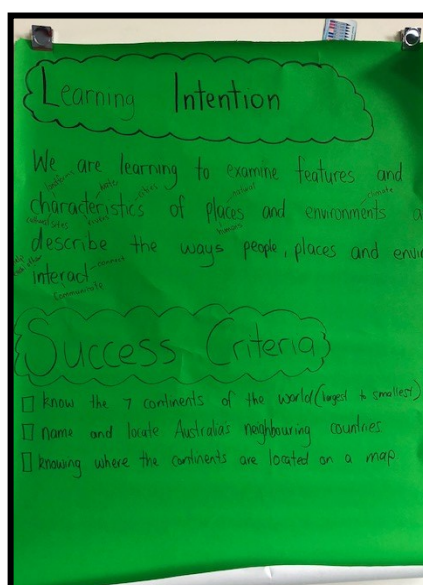 Learning Intention
We are learning to examine features and
characteristics of places and environments a
describe the ways people, places and envir
interact
connect
communicate
Success Criteria
know the 7 continents of the world (largest to smallest)
name and locate Australia's neighbouring countries
knowing where the continents are located on a map